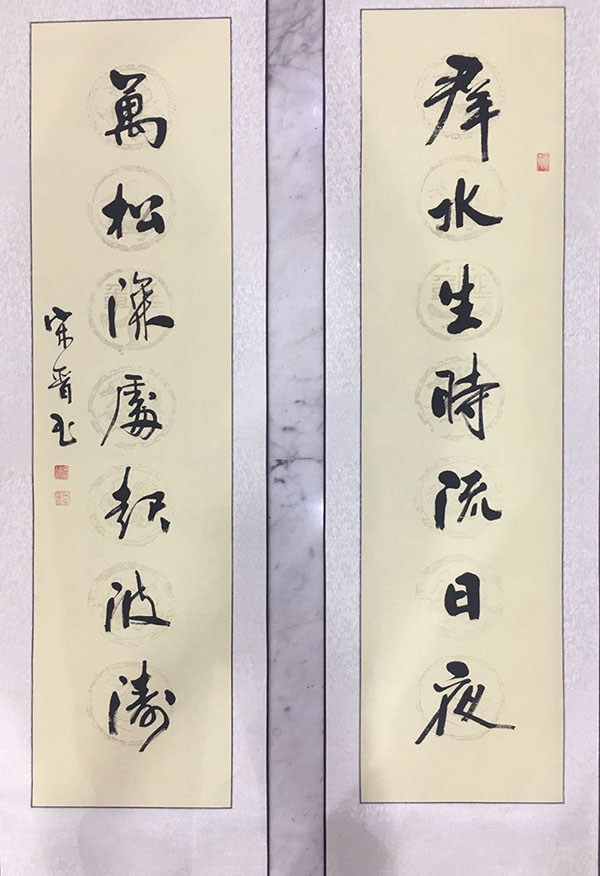 羣水生時流日夜
萬松深處起波濤
宋晋飞